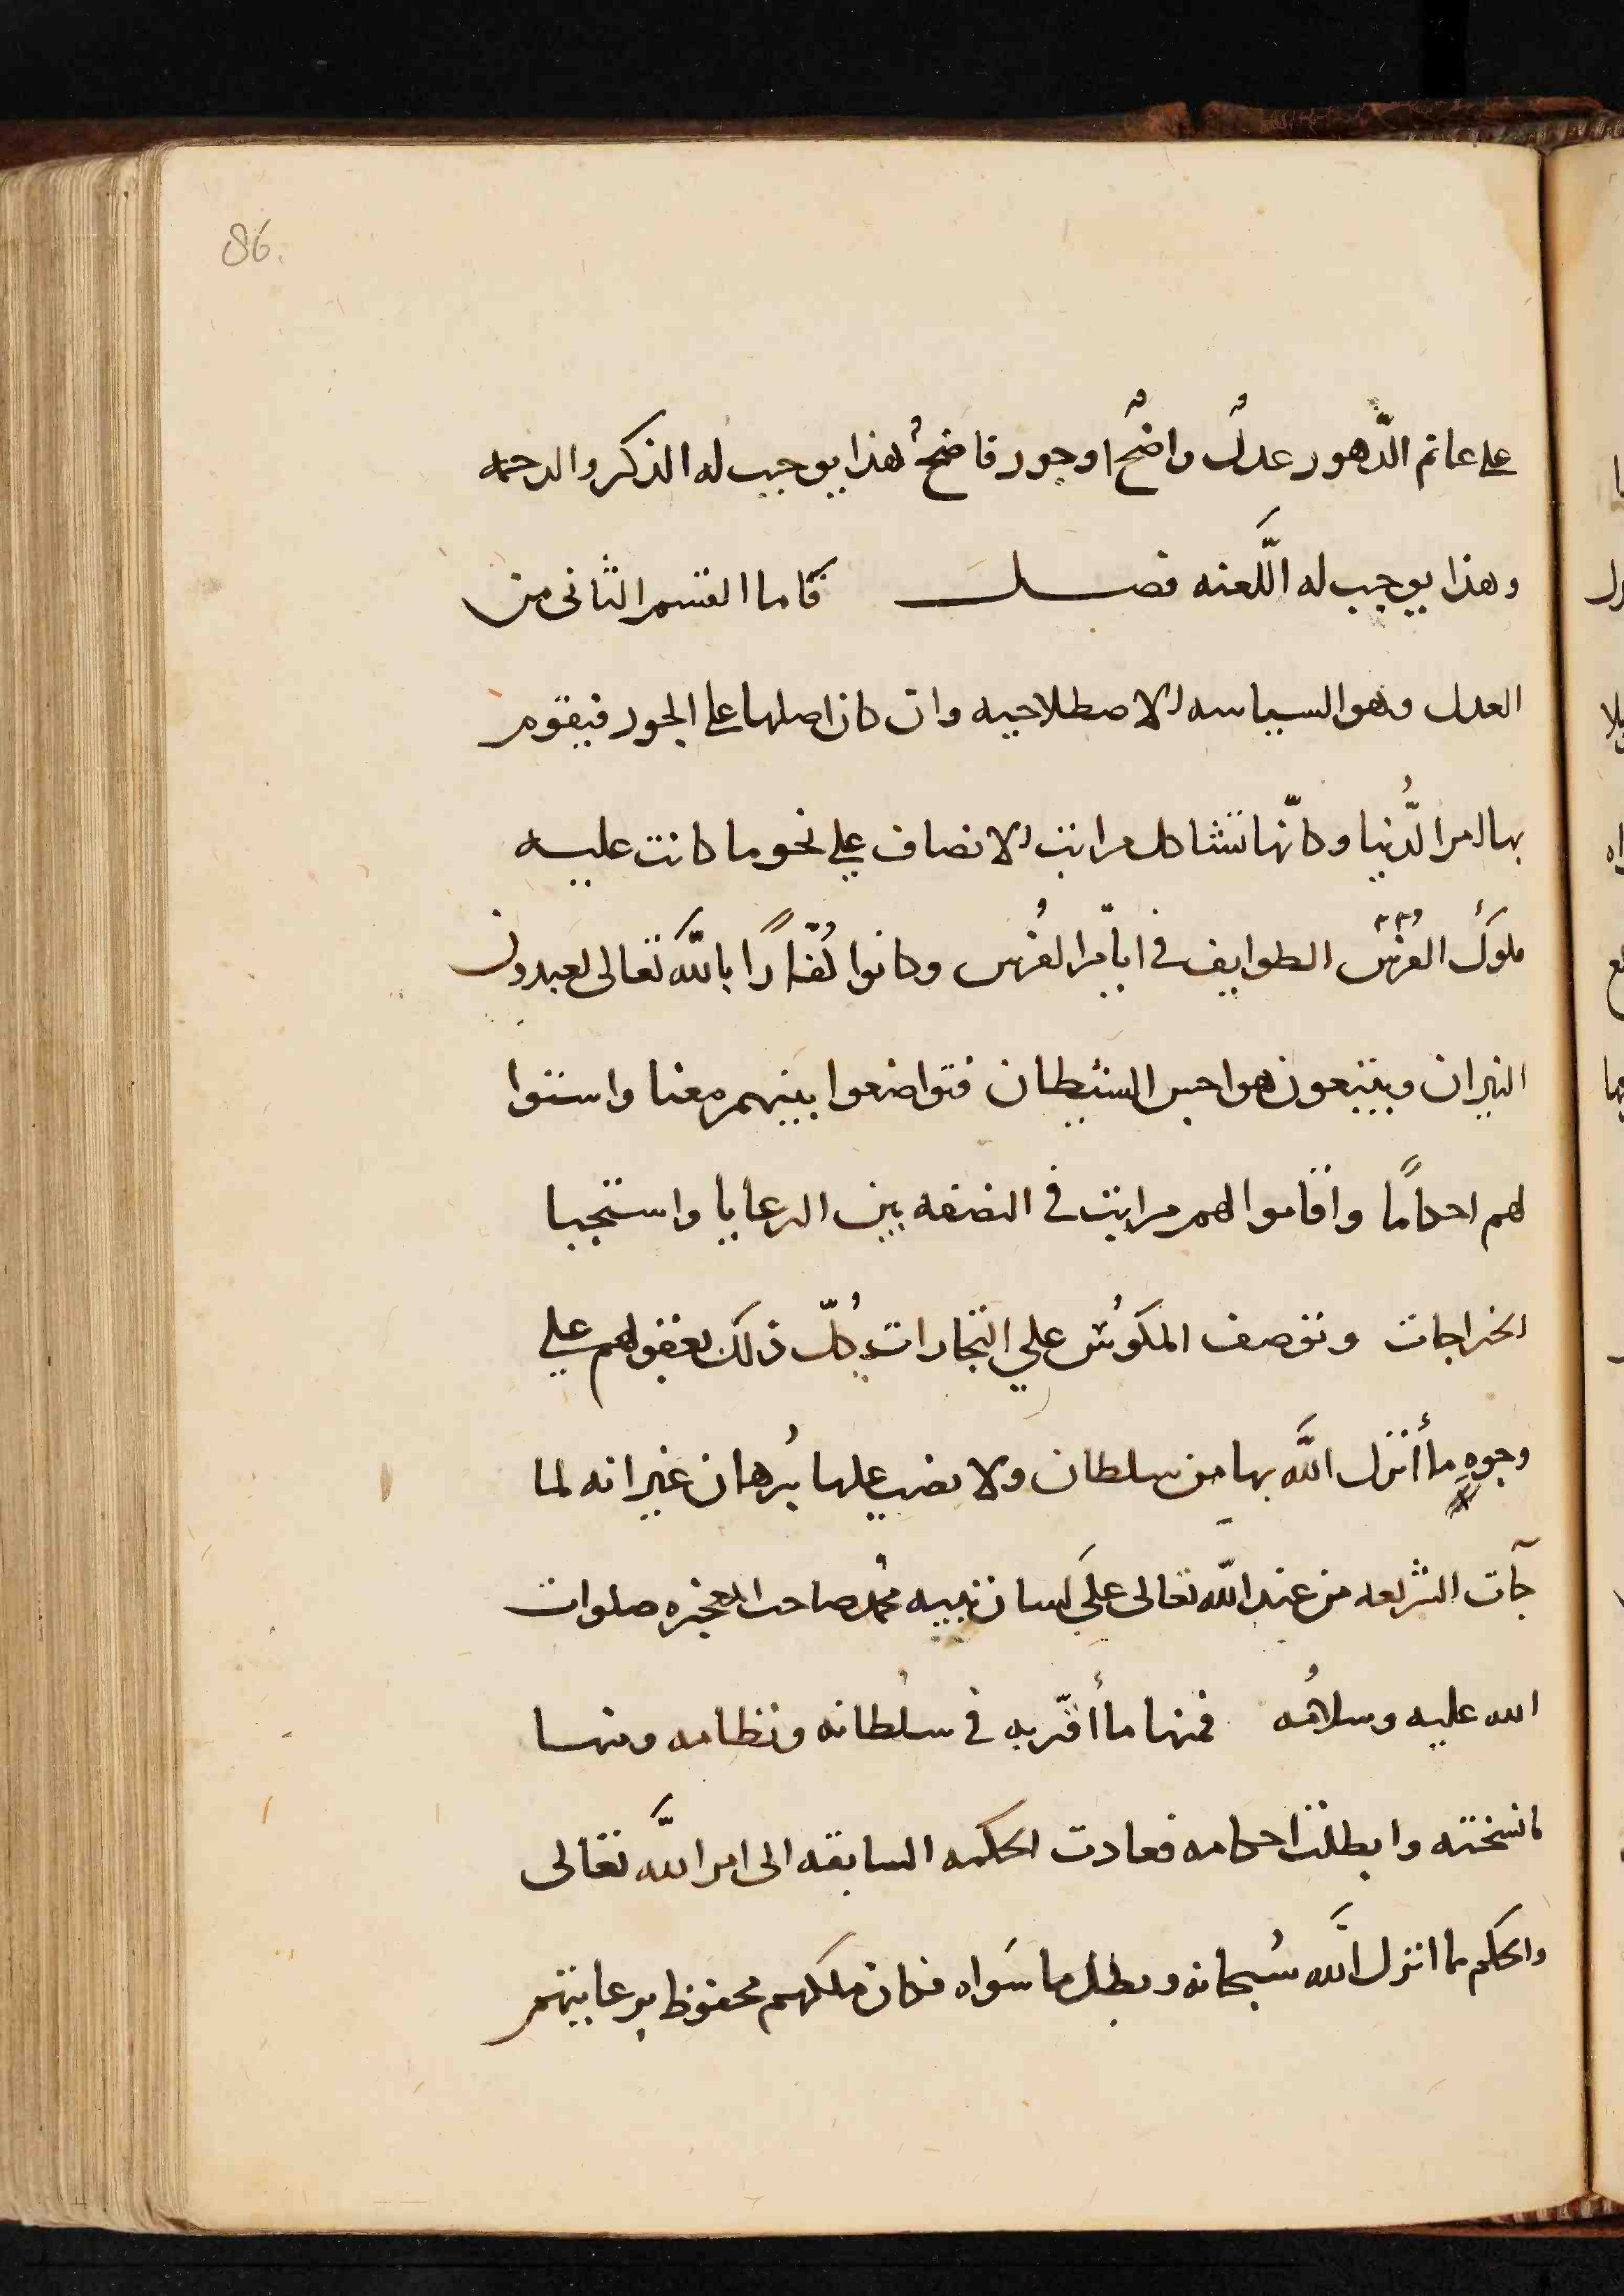 86.
على عاتم الدَّهور عدلٌ واضحٌ اوجور فاضحٌ هذا يوجب له الذكر والرحمه
وهذا يوجب له اللَّعنه فصل فاما القسم الثانى من
العدل وهو السياسه الاصطلاحيه وان كان اصلها على الجور فيقوم
بها امر الدُّنيا وكانّها تشاكل مراتب الانصاف على نحو ما كانت عليه
ملوك الفُرْس الطوايف فى ايّام الفُرس وكانوا كُفّارًا بالله تعالى يعبدون
النيران ويتبعون هواجس الشيطان فتواضعوا بينهم معنا واستنوا
لهم احكامًا واقاموا لهم مراتب فى النصفه بين الرعايا واستجبا
الخراجات وتوصف المكُوس على التجارات كُلّ ذلك بعقولهم على
وجوهٍ ما أنزل الله بها من سلطان ولا نصب عليها بُرهان غير انه لما
جآت الشريعه من عند الله تعالى على لسان نبيه محُمد صاحب المعجزه صلوات
الله عليه وسلامُه فمنها ما أقرّ به فى سلُطانه ونظامه ومنها
مانسخته وابطلت احكامه فعادت الحكمه السابقه الى امر الله تعالى
والحكم بما انزل الله سُبحانه وبطل ما سَواه فكان ملكهم محفوظ برعايتهم